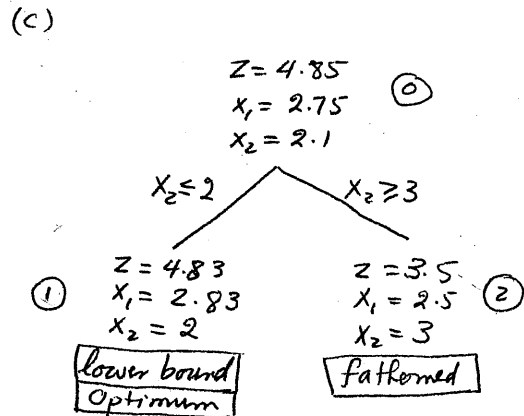 (c)
Z = 4.85
X₁ = 2.75
X₂ = 2.1
⓪
X₂≤2
X₂≥3
①
Z = 4.83
X₁ = 2.83
X₂ = 2
lower bound
Optimum
Z = 3.5
X₁ = 2.5
X₂ = 3
②
fathomed